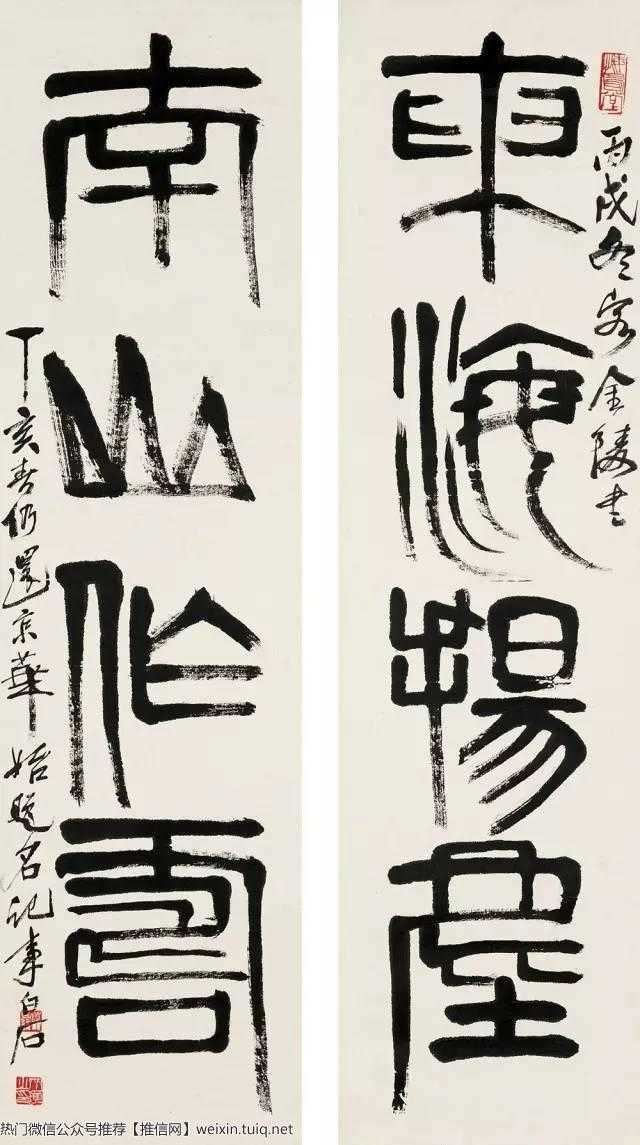 東海揚塵
丙戌冬客金陵書
南山作壽
丁亥春仍還京華 始題名記事 白石
热门微信公众号推荐【推信网】weixin.tuiq.net